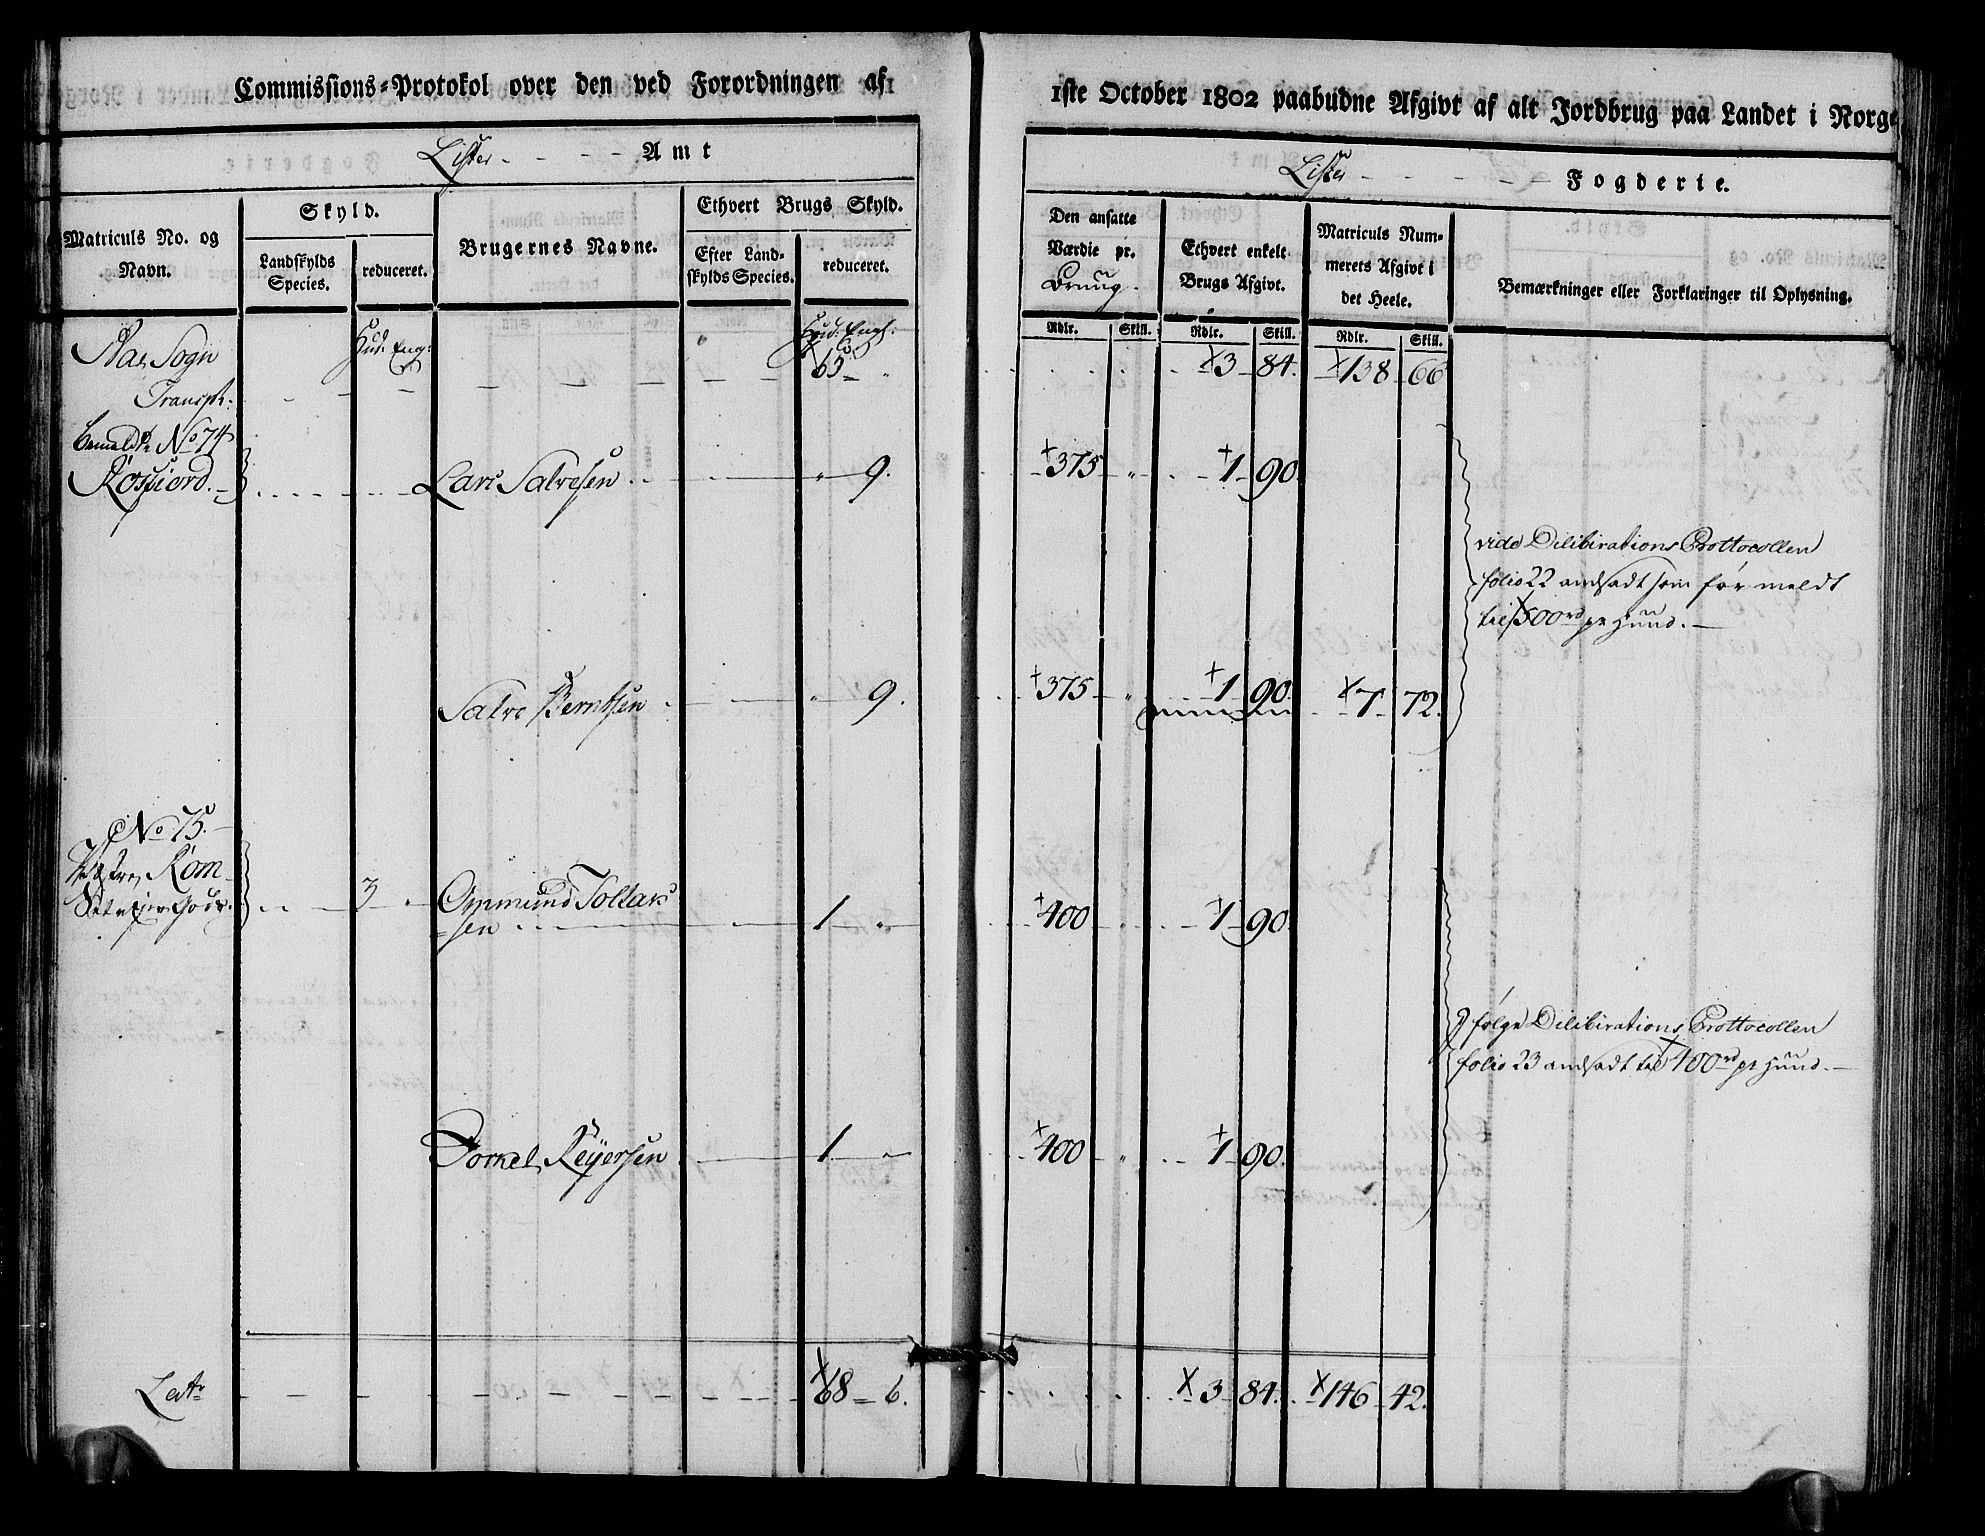 Commissions-Protokol over den ved Forordningen af
1ste October 1802 paabudne Afgivt af alt Jordbrug paa Landet i Norge
Lister - - - - Amt
Lister - - - - Fogderie.
Matriculs No. og Navn.
Skyld.
Landskylds Species.
reduceret.
Brugernes Navne.
Ethvert Brugs Skyld.
Efter Landskylds Species.
reduceret.
Den ansatte Værdie pr. Bruug.
Ethvert enkelt Brugs Afgivt.
Matriculs Nummerets Afgivt i det Heele.
Bemærkninger eller Forklaringer til Oplysning.
Rdlr. Skill. Rdlr. Skill. Rdlr. Skill.
Hud. Eng: Hud: Eng:
Sogn
Transpt: 65 - " 3 - 84. 138 - 66
No 74
Lars Salvesen - " - 9. 375 - " 1 - 90.
vide Dilibirations Prottocollen
folio 22 andsadt som før meldt
til 500 rd pr Huud. -
Salve Berntsen - " - 9. 375 - " 1 - 90. 7 - 72.
No 75.
Røm-
3 - Ommund Tollaks
=sen - 1 - " 400 - " 1 - 90.
følge Dilibirations Prottocollen
folio 23 andsadt til 400 rd pr Huud. -
Torkel Reijersen - 1 - " 400 - " 1 - 90.
Latr 68 - 6. 3 - 84. 146 - 42.